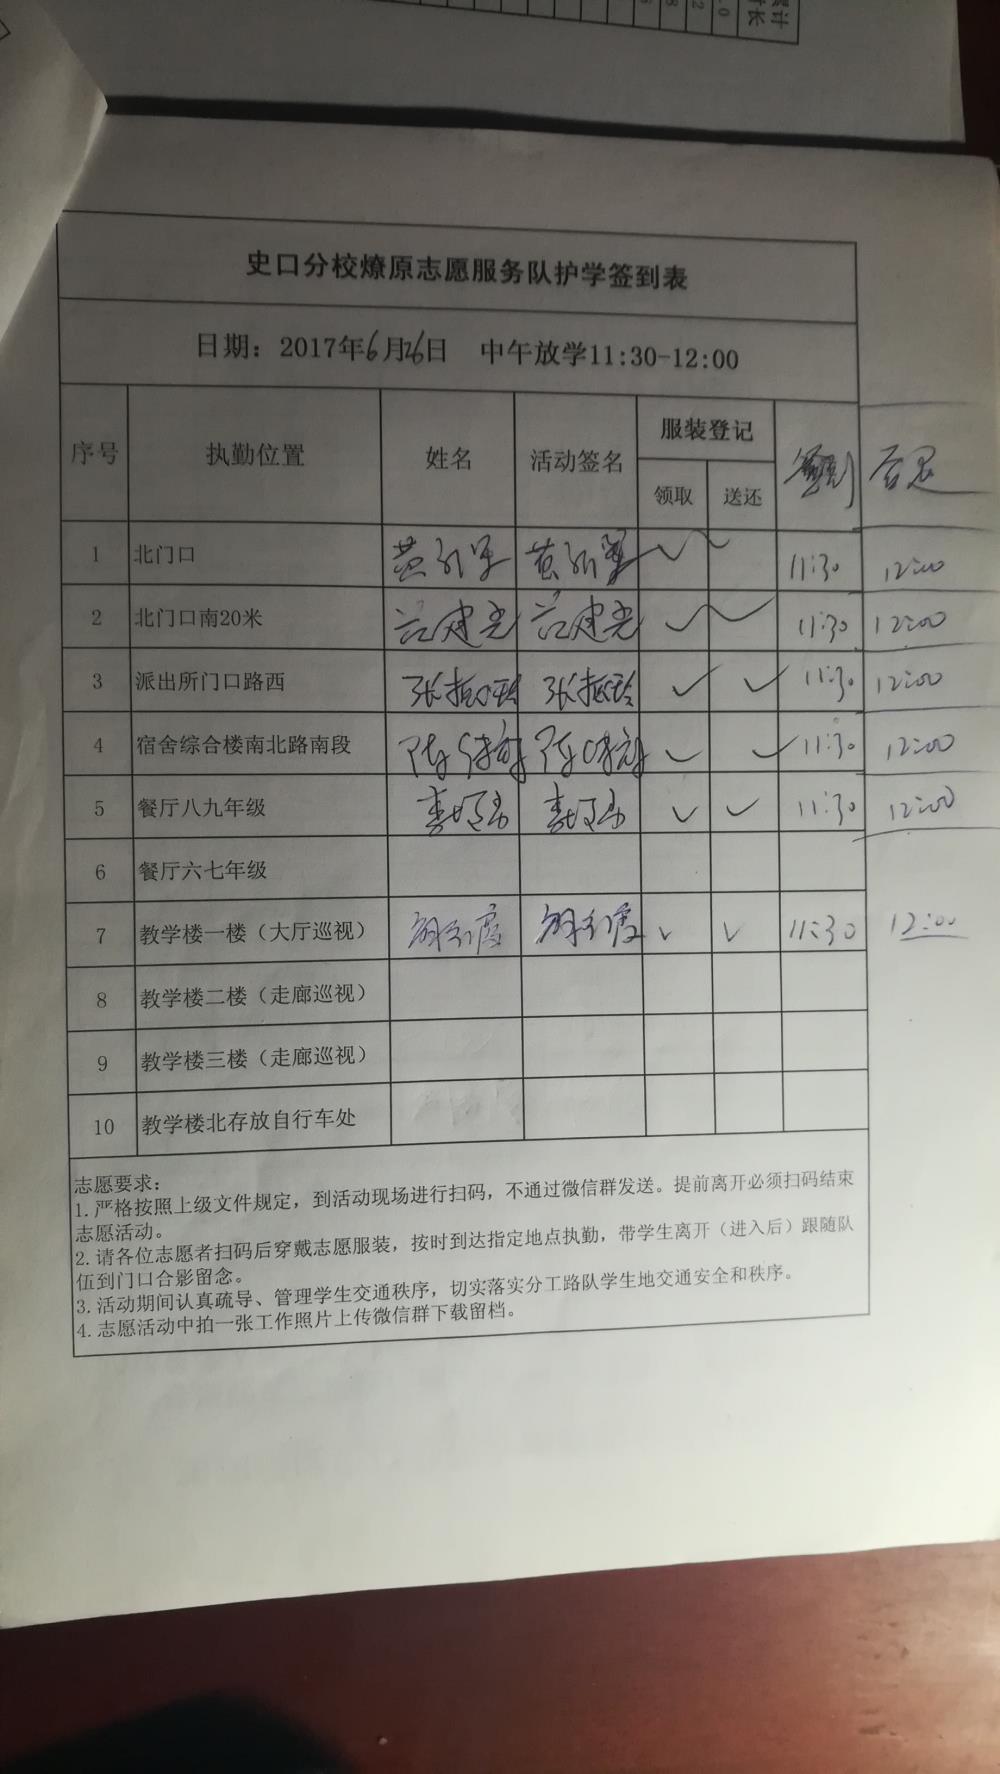 累计
时长
史口分校燎原志愿服务队护学签到表
日期：2017年6月26日 中午放学11:30-12:00
序号 执勤位置 姓名 活动签名 服装登记 签到
领取 送还
1 北门口 11:30 12:00
2 北门口南20米 吕建光 吕建光 11:30 12:00
3 派出所门口路西 11:30 12:00
4 宿舍综合楼南北路南段 11:30 12:00
5 餐厅八九年级 11:30 12:00
6 餐厅六七年级
7 教学楼一楼（大厅巡视） 11:30 12:00
8 教学楼二楼（走廊巡视）
9 教学楼三楼（走廊巡视）
10 教学楼北存放自行车处
志愿要求：
1.严格按照上级文件规定，到活动现场进行扫码，不通过微信群发送。提前离开必须扫码结束
志愿活动。
2.请各位志愿者扫码后穿戴志愿服装，按时到达指定地点执勤，带学生离开（进入后）跟随队
伍到门口合影留念。
3.活动期间认真疏导、管理学生交通秩序，切实落实分工路队学生地交通安全和秩序。
4.志愿活动中拍一张工作照片上传微信群下载留档。